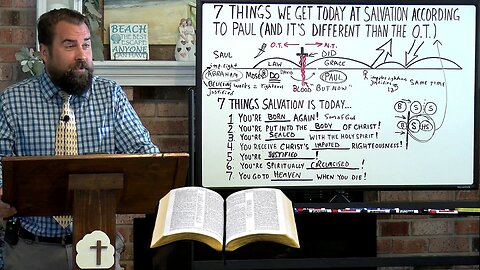 BEACH
BEST
ESCAPE
ANYONE
CAN HAVE
7 THINGS WE GET TODAY AT SALVATION ACCORDING
TO PAUL (AND IT'S DIFFERENT THAN THE O.T.)
O.T. N.T.
SAUL DID
LAW GRACE
ABRAHAM Moses DO David PAUL SAME TIME
BLOOD BUT NOW
7 THINGS SALVATION IS TODAY...
1 YOU'RE BORN AGAIN! Son of God
2 YOU'RE PUT INTO THE BODY OF CHRIST!
3 YOU'RE SEALED WITH THE HOLY SPIRIT!
4 YOU RECEIVE CHRIST'S IMPUTED RIGHTEOUSNESS!
5 YOU'RE JUSTIFIED!
6 YOU'RE SPIRITUALLY CIRCUMCISED!
7 YOU GO TO HEAVEN WHEN YOU DIE!
B S S
B S HS